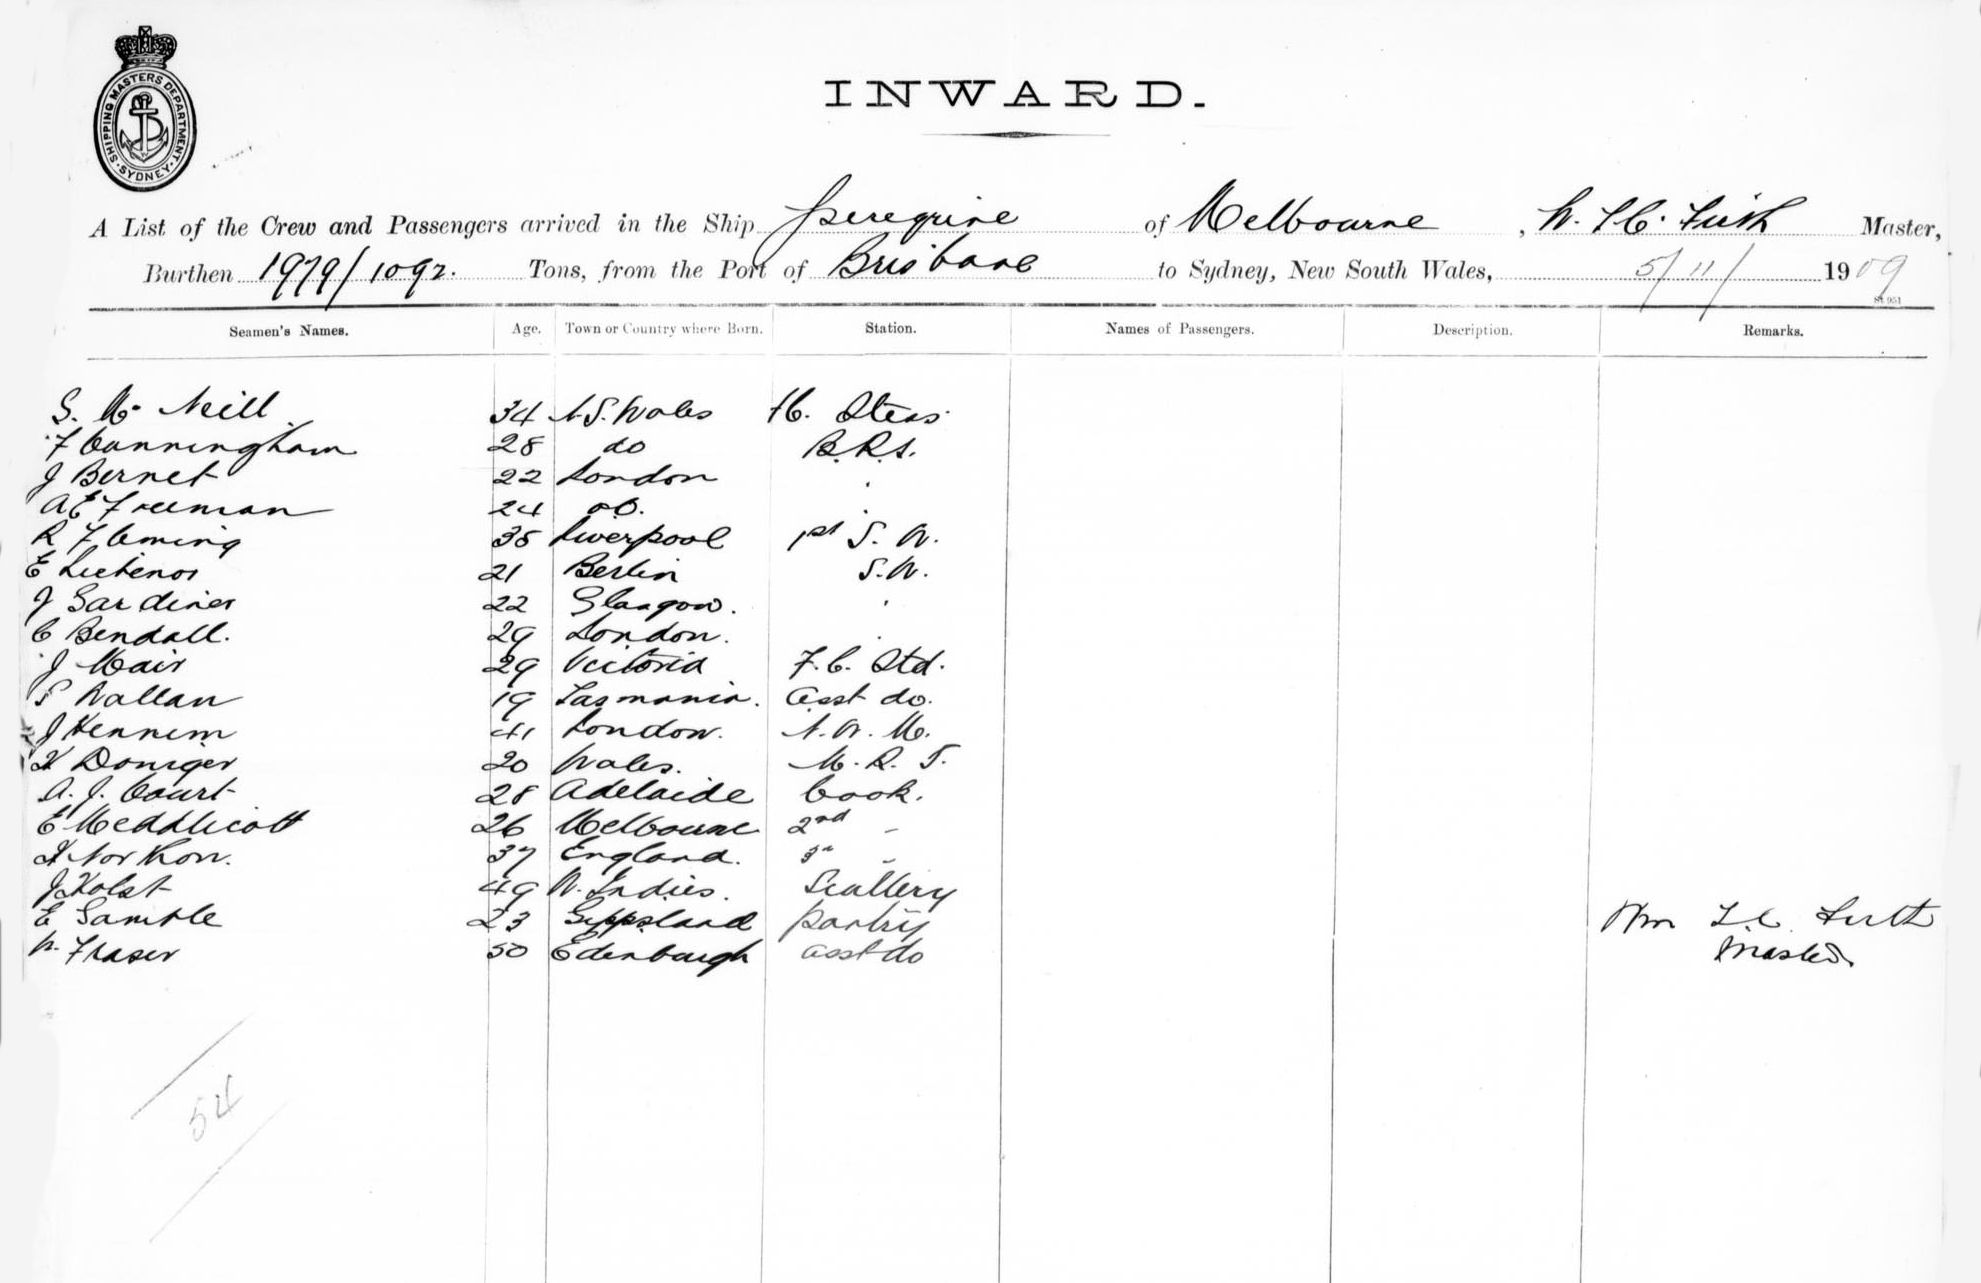 SHIPPING MASTERS DEPARTMENT
SYDNEY
INWARD.
A List of the Crew and Passengers arrived in the Ship Peregrine of Melbourne, W. Master,
Burthen 1979/1092. Tons, from the Port of Brisbane to Sydney, New South Wales, 5/11/1909
St 951
Seamen's Names. Age. Town or Country where Born. Station. Names of Passengers. Description. Remarks.
S. Mc Neill 34 N.S. Wales H. Stews
F Cunningham 28 do B.R.S.
J Bernet 22 London "
A E Freeman 24 do. "
R Fleming 35 Liverpool 1st S. W.
E 21 Berlin S.W.
J Gardiner 22 Glasgow. "
C Bendall. 29 London. "
J Mair 29 Victoria F.C. Std.
S Wallan 19 Tasmania. Asst do.
J Kennim 41 London. N. W. M.
H Doniger 20 Wales. M. R. S.
A. J. Court 28 Adelaide Cook.
E Meddlicott 26 Melbourne 2nd -
H Norkon. 37 England. 3rd -
J Holst 49 W. Indies. Scullery
E Gamble 23 Gippsland pantry
W. Fraser 50 Edenburgh asst do
Wm Master
54